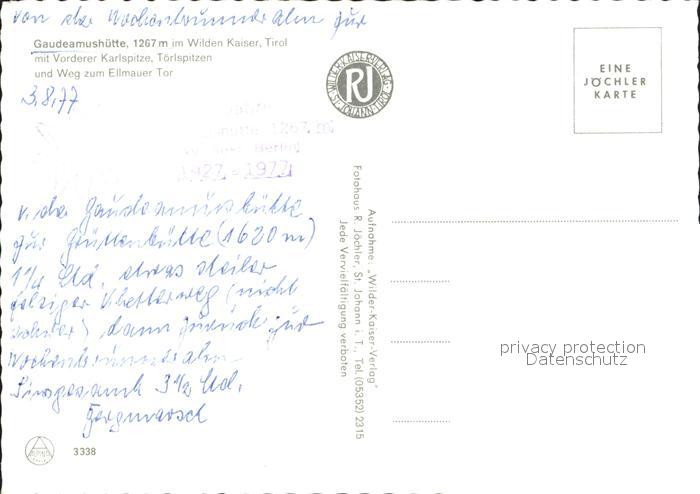 von der Wochenbrunneralm zur
Gaudeamushütte, 1267 m im Wilden Kaiser, Tirol
mit Vorderer Karlspitze, Törlspitzen
und Weg zum Ellmauer Tor
3.8.77
hütte 1267 m
Berlin
1927 - 1977
WILDER-KAISER-VERLAG
ST. JOHANN-TIROL
RJ
EINE
JÖCHLER
KARTE
v. der Gaudeamushütte
zur Gruttenhütte (1620 m)
1 1/4 Std. etwas steiler
felsiger Kletterweg (nicht
schwer) dann zurück zur
Wochenbrunneralm
Insgesamt 3 1/2 Std.
Aufnahme: „Wilder-Kaiser-Verlag"
Fotohaus R. Jöchler, St. Johann i. T., Tel. (05352) 2315
Jede Vervielfältigung verboten
privacy protection
Datenschutz
3338